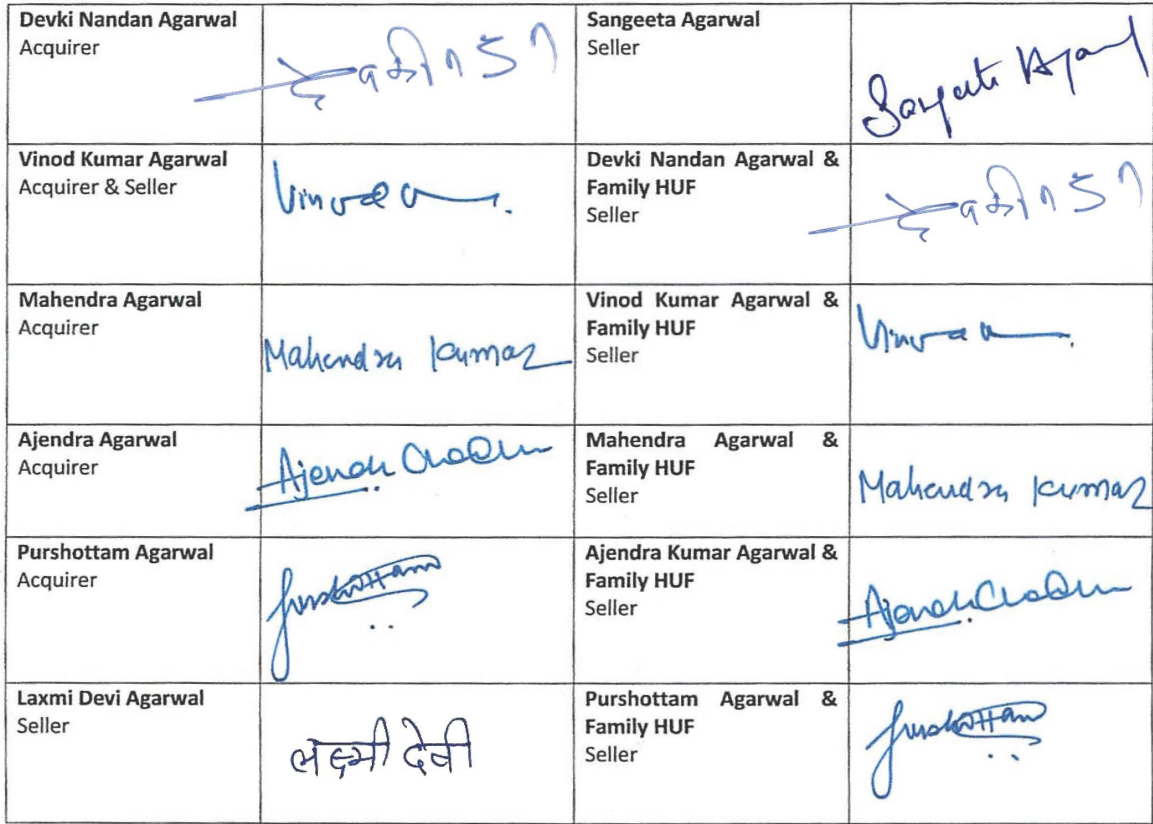 Devki Nandan Agarwal
Acquirer
Sangeeta Agarwal
Seller
Vinod Kumar Agarwal
Acquirer & Seller
Devki Nandan Agarwal &
Family HUF
Seller
Mahendra Agarwal
Acquirer
Mahendra Kumar
Vinod Kumar Agarwal &
Family HUF
Seller
Ajendra Agarwal
Acquirer
Mahendra Agarwal &
Family HUF
Seller
Mahendra Kumar
Purshottam Agarwal
Acquirer
Purshottam
Ajendra Kumar Agarwal &
Family HUF
Seller
Laxmi Devi Agarwal
Seller
लक्ष्मी देवी
Purshottam Agarwal &
Family HUF
Seller
Purshottam